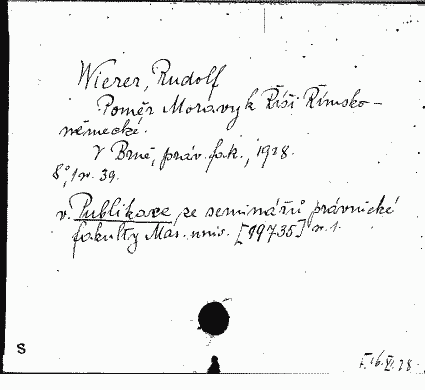 Wierer, Rudolf
Poměr Moravy k Říši Římsko-
německé.
V Brně, práv. fak., 1928.
8°, str. 39.
v. Publikace ze seminářů právnické
fakulty Mas. univ. [49735] n. 1.
S